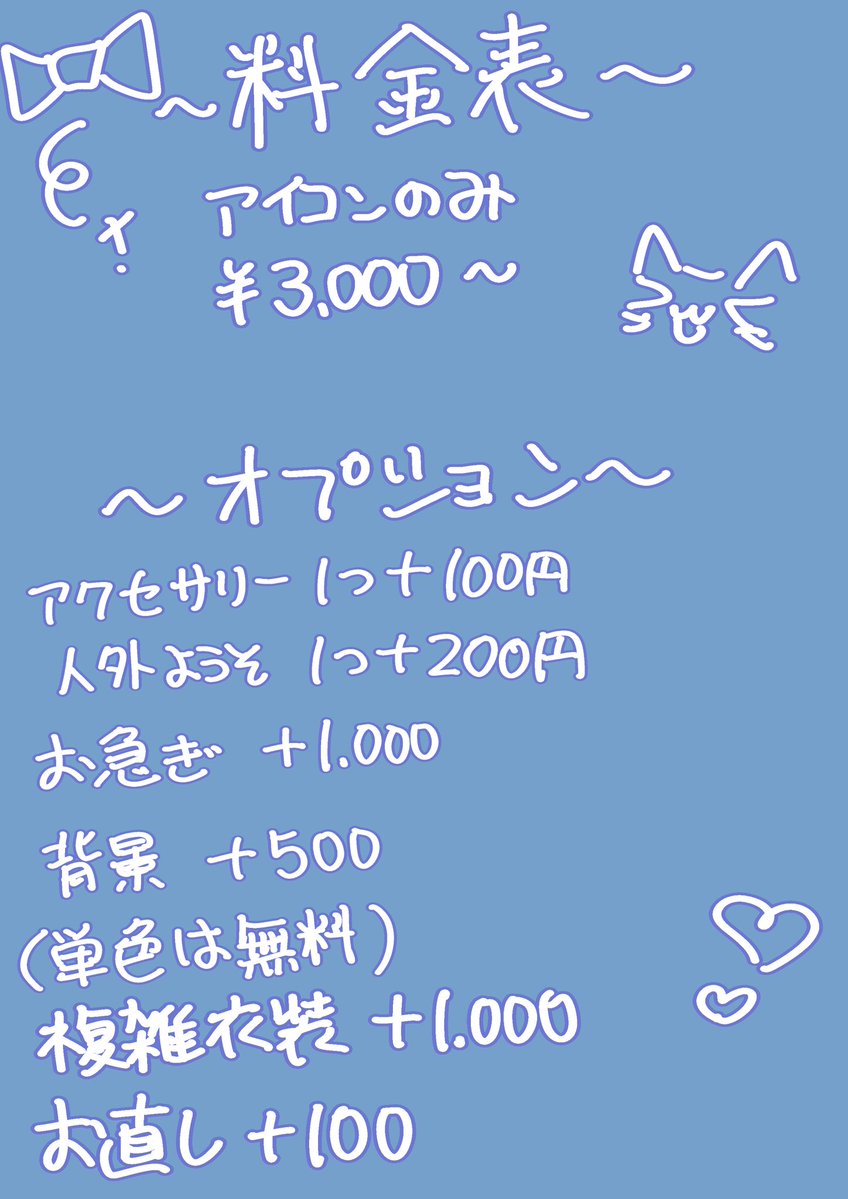 ～料金表～
アイコンのみ
¥3.000～
～オプション～
アクセサリー 1つ+100円
人外ようそ 1つ+200円
お急ぎ +1.000
背景 +500
(単色は無料)
複雑衣装 +1.000
お直し+100